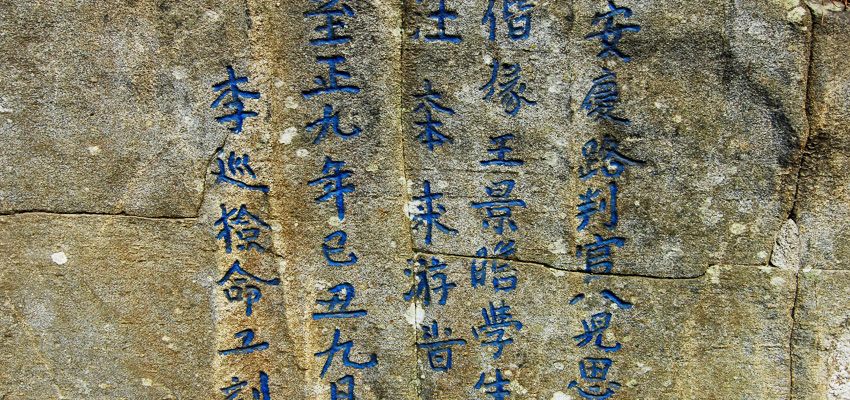 安慶路判官八兒思
偕掾王景瞻學生
汪來游旹
至正九年己丑九月
李巡檢命工刻